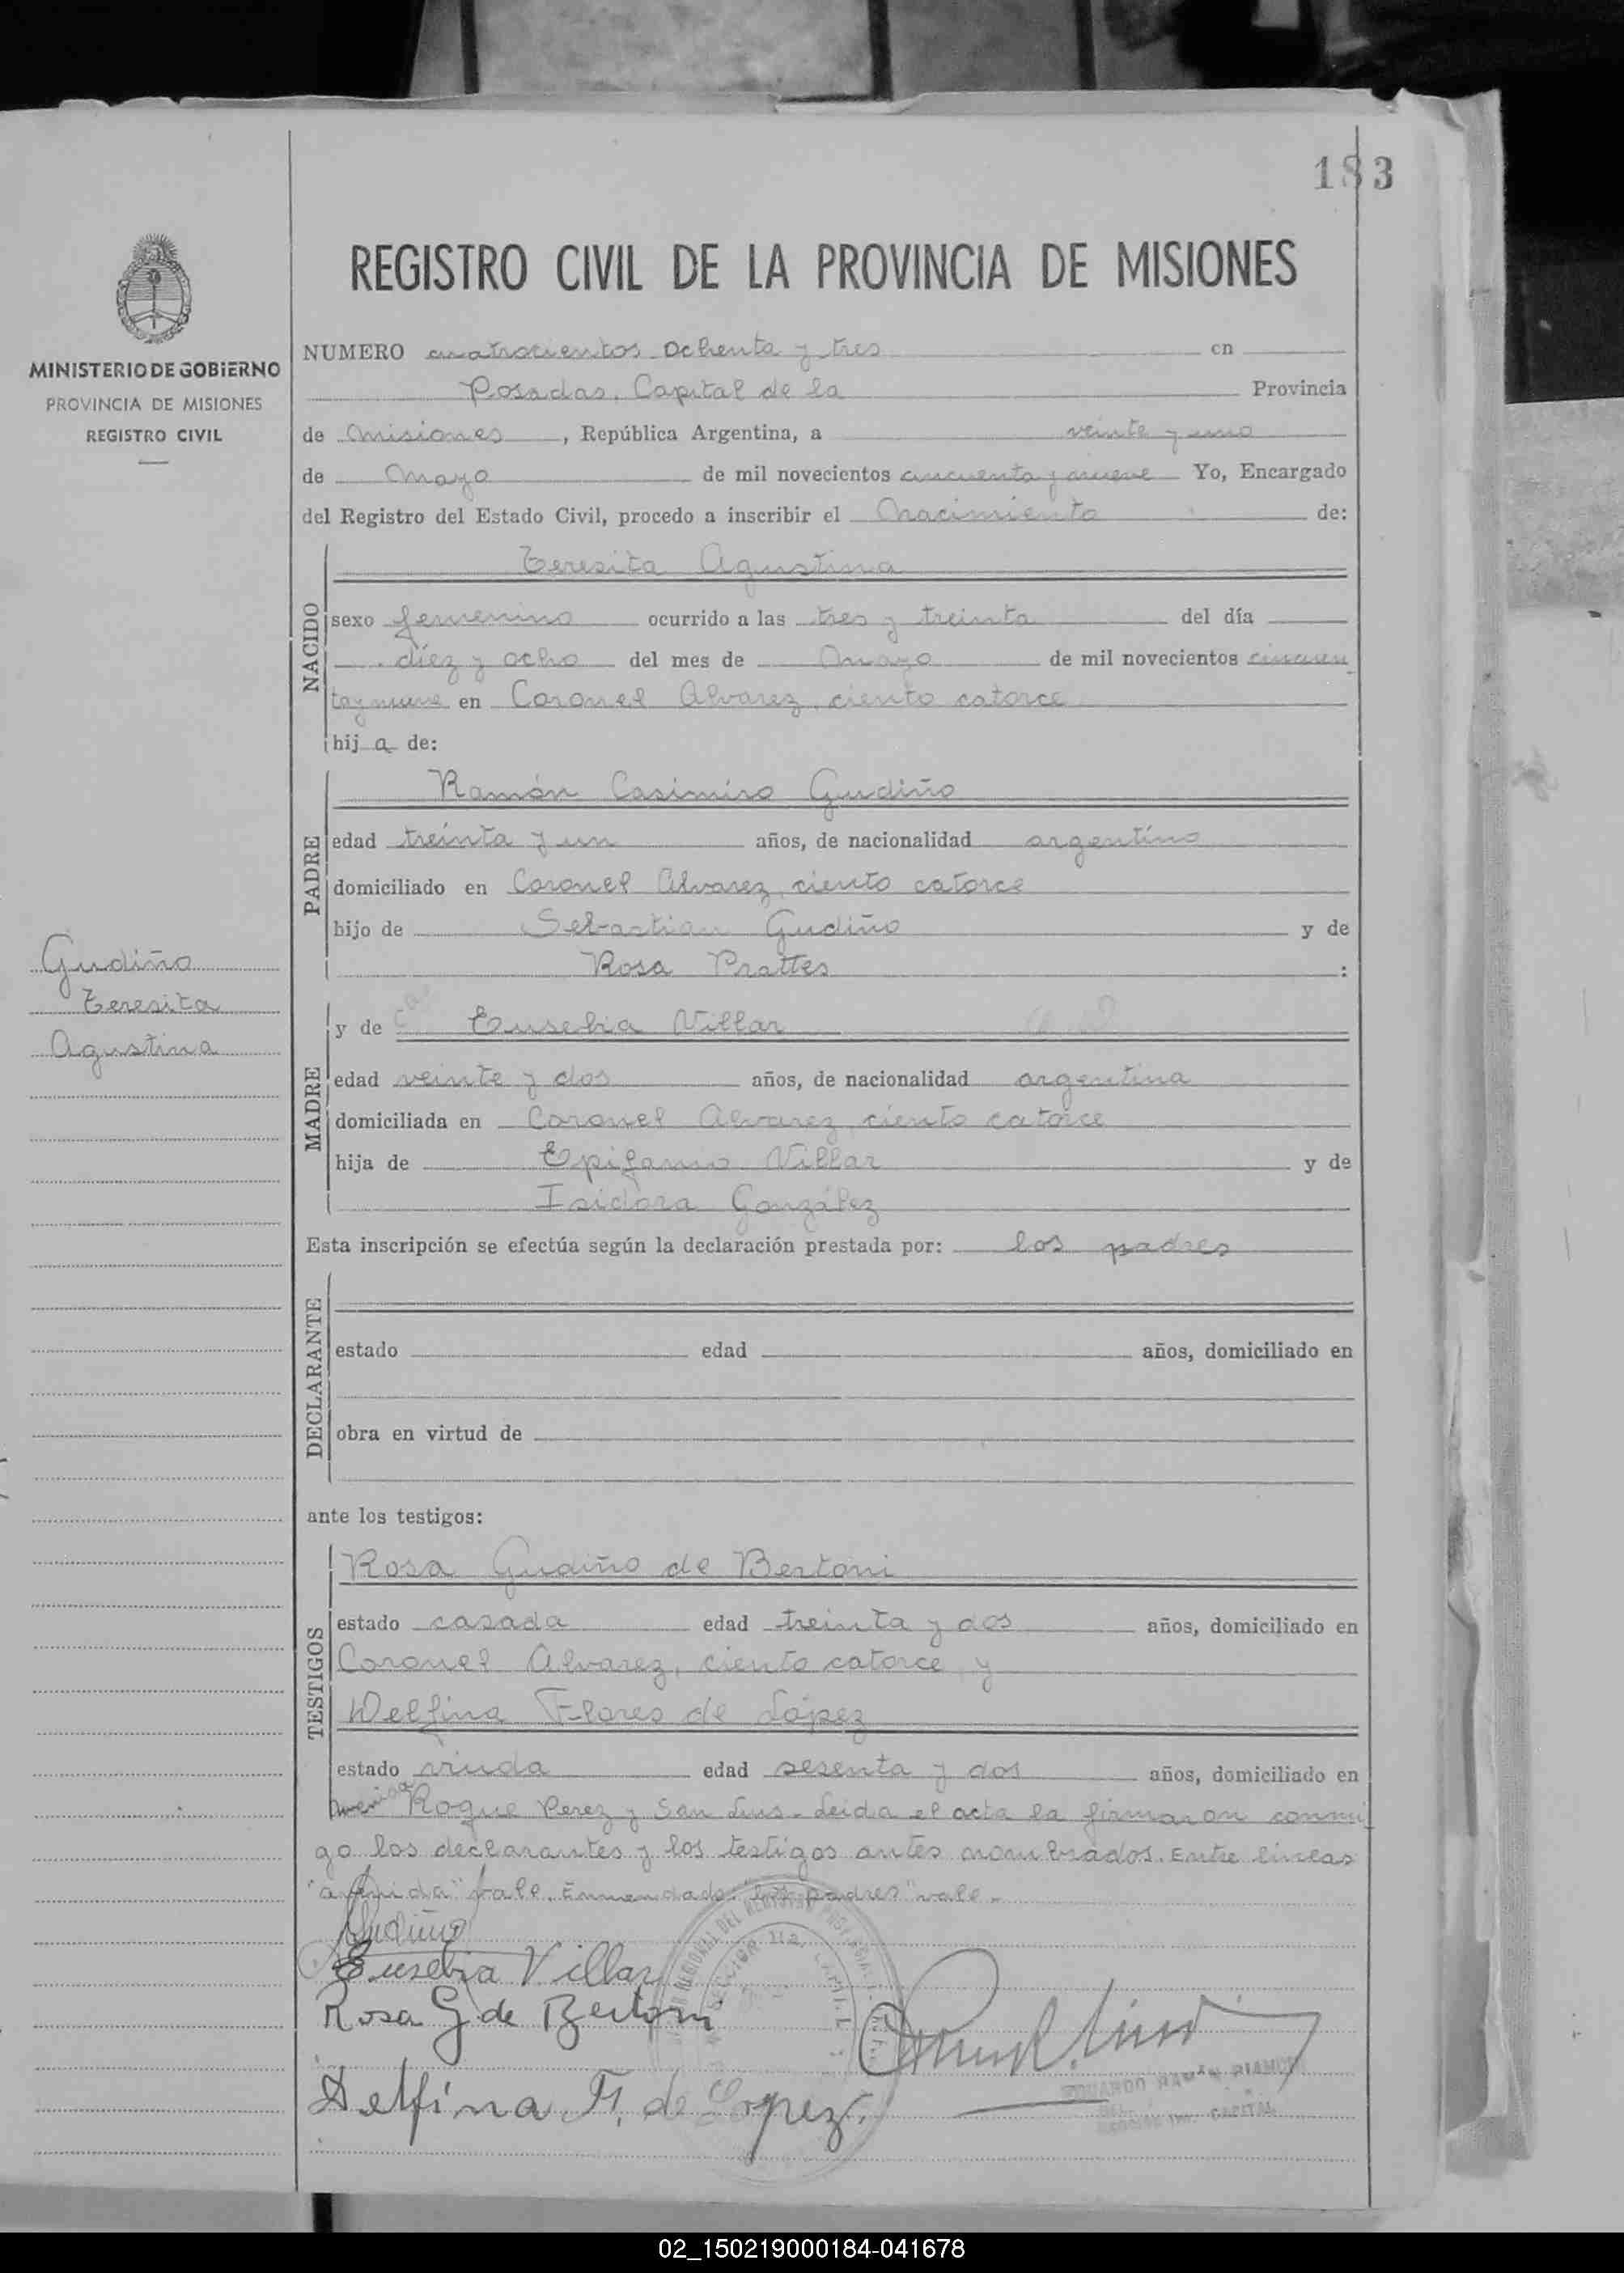 183
REGISTRO CIVIL DE LA PROVINCIA DE MISIONES
MINISTERIO DE GOBIERNO
PROVINCIA DE MISIONES
REGISTRO CIVIL
NUMERO cuatrocientos ochenta y tres en
Posadas, Capital de la Provincia
de Misiones, República Argentina, a veinte y uno
de Mayo de mil novecientos cincuenta y nueve Yo, Encargado
del Registro del Estado Civil, procedo a inscribir el Nacimiento de:
NACIDO
Teresita Agustina
sexo femenino ocurrido a las tres y treinta del día
diez y ocho del mes de Mayo de mil novecientos cincuen
ta y nueve en Coronel Alvarez, ciento catorce
hij a de:
PADRE
Ramón Casimiro Gudiño
edad treinta y un años, de nacionalidad argentino
domiciliado en Coronel Alvarez, ciento catorce
hijo de Sebastian Gudiño y de
Rosa Prattes :
Gudiño
Teresita
Agustina
MADRE
y de Eusebia Villar
edad veinte y dos años, de nacionalidad argentina
domiciliada en Coronel Alvarez, ciento catorce
hija de Epifanio Villar y de
Isidora González
Esta inscripción se efectúa según la declaración prestada por: los padres
DECLARANTE
estado edad años, domiciliado en
obra en virtud de
ante los testigos:
TESTIGOS
Rosa Gudiño de Bertoni
estado casada edad treinta y dos años, domiciliado en
Coronel Alvarez, ciento catorce y
Delfina Flores de López
estado viuda edad sesenta y dos años, domiciliado en
Roque Perez y San Luis. Leida el acta la firmaron conmi
go los declarantes y los testigos antes nombrados. Entre lineas
"avenida" vale. Enmendado: "los padres" vale.
Gudiño
Eusebia Villar
Rosa G de Bertoni
Delfina F. de Lopez.
CAPITAL
02_150219000184-041678